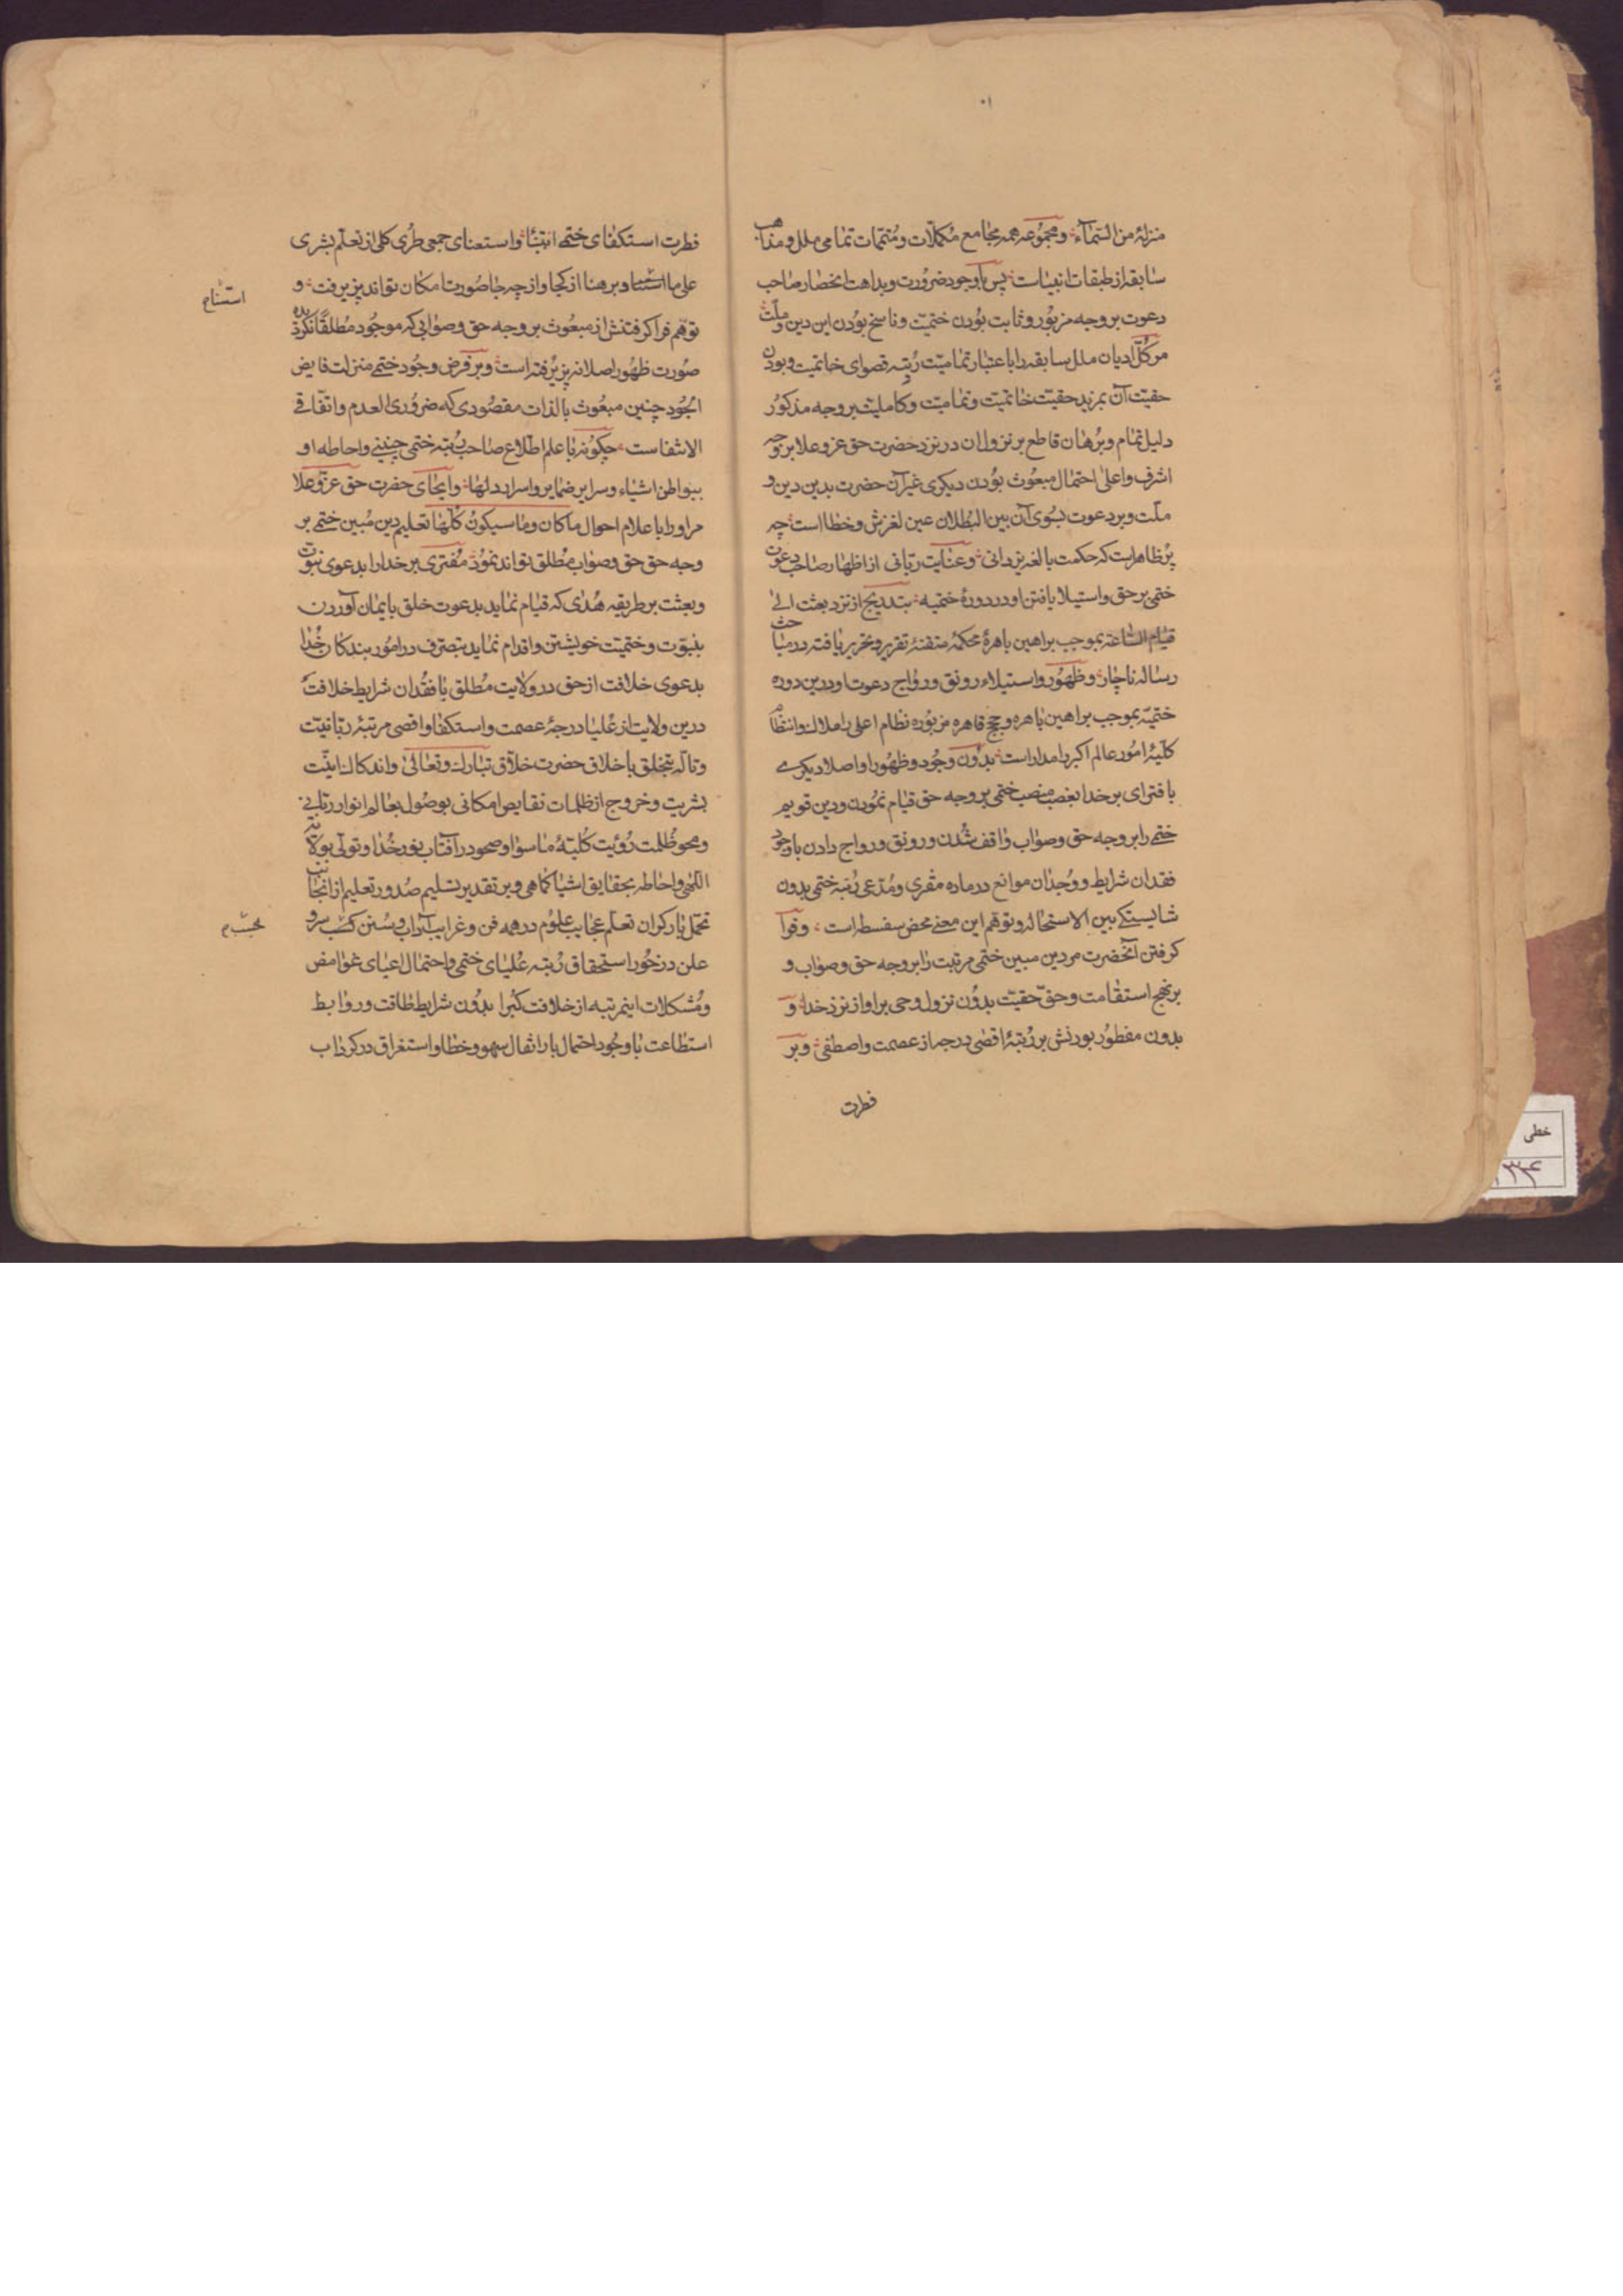 ۱۰
منزلهٔ من السّمآء و مجموعه همه مجامع مکمّلات و متمّمات تمامی ملل و مذاهب
سابقه از طبقات انبیاست پس با وجود ضرورت و بداهت انحصار صاحب
دعوت بر وجه مزبور و ثابت بودن ختمیّت و ناسخ بودن این دین و ملّت
مر کلّ ادیان ملل سابقه را باعتبار تمامیّت رتبه قصوای خاتمیّت و بودن
حقیّت آن بمزید حقیّت خاتمیّت و تمامیّت و کاملیّت بر وجه مذکور
دلیل تمام و برهان قاطع بر نزول آن در نزد حضرت حق عز و علا بر وجه
اشرف و اعلی احتمال مبعوث بودن دیکری غیر آن حضرت بدین دین و
ملّت و بر دعوت بسوی آن بین البطلان عین لغزش و خطا است چه
پر ظاهر است که حکمت بالغه یزدانی و عنایت ربّانی از اظهار صاحب دعوت
ختمی بر حق و استیلا یافتن او در دورهٔ ختمیه بتدریج از نزد بعثت الی
قیام السّاعة بموجب براهین باهرهٔ محکمهٔ متقنهٔ تقریر و تحریر یافته در مباحث
رساله ناچار و ظهور و استیلاء رونق و رواج دعوت او درین دوره
ختمیّه بموجب براهین باهره و حجج قاهره مزبوره نظام اعلی را ملاک و انتظام
کلّیّهٔ امور عالم اکبر را مدار است بدون وجود و ظهور او اصلا دیکری
بافترای بر خدا بغصب منصب ختمی بر وجه حق قیام نمودن و دین قویم
ختمی را بر وجه حق و صواب واقف شدن و رونق و رواج دادن با وجود
فقدان شرایط و وجدان موانع در ماده مفتری و مدّعی رتبه ختمی بدون
شایستکی بین الاستحاله و توهم این معنی محض سفسطه است و فرا
کرفتن آنحضرت مر دین مبین ختمی مرتبت را بر وجه حق و صواب و
بر نهج استقامت و حقّ حقیّت بدون نزول وحی بر او از نزد خدا و
بدون مفطور بودنش بر رتبهٔ اقصی درجه از عصمت و اصطفی و بر
فطرت
فطرت استکفای ختمی انتما و استغنای جمعی طرّی کلی از تعلّم بشری
علی ما استتم و برهنا از کجا و از چه جا صورت امکان تواند پزیرفت و
استنام
توهّم فرا کرفتنش از مبعوث بر وجه حق و صوابی که موجود مطلقا نکردیده
صورت ظهور اصلا نپزیرفته است و بر فرض وجود ختمی منزلت فایض
الجود چنین مبعوث بالذات مقصودی که ضروری العدم و اتّفاقی
الانتفاست چکونه با علم اطّلاع صاحب رتبه ختمی چنینی و احاطه او
ببواطن اشیاء و سرایر ضمایر و اسرار دلها و ایحای حضرت حق عزّ و علا
مر او را باعلام احوال ما کان و ما سیکون کلّها تعلیم دین مبین ختمی بر
وجه حق حق و صواب مطلق تواند نمود مفتری بر خدا را بدعوی نبوّت
و بعثت بر طریقه هدی که قیام نماید بدعوت خلق بایمان آوردن
بنبوّت و ختمیّت خویشتن و اقدام نماید بتصرّف در امور بندکان خدا
بدعوی خلافت از حق در ولایت مطلق با فقدان شرایط خلافت
درین ولایت از علیا درجهٔ عصمت و استکفا و اقصی مرتبهٔ ربّانیّت
و تألّه بتخلق باخلاق حضرت خلّاق تبارک و تعالی و اندکاک انیّت
بشریت و خروج از ظلمات نقایص امکانی بوصول بعالم انوار ربّانی
و محو ظلمت رؤیت کلیّهٔ ما سوا و صحو در آفتاب نور خدا و تولّی بولایت
الهی و احاطه بحقایق اشیا کما هی و بر تقدیر تسلیم صدور تعلیم از آنجناب
تحمّل بار کران تعلّم عجایب علوم در همه فن و غرایب آداب و سنن بحسب سر و
علن در خور استحقاق رتبه علیای ختمی و احتمال اعبای غوامض
و مشکلات اینمرتبه از خلافت کبرا بدون شرایط طاقت و روابط
استطاعت با وجود احتمال بار اثقال سهو و خطا و استغراق در کرداب
خطی